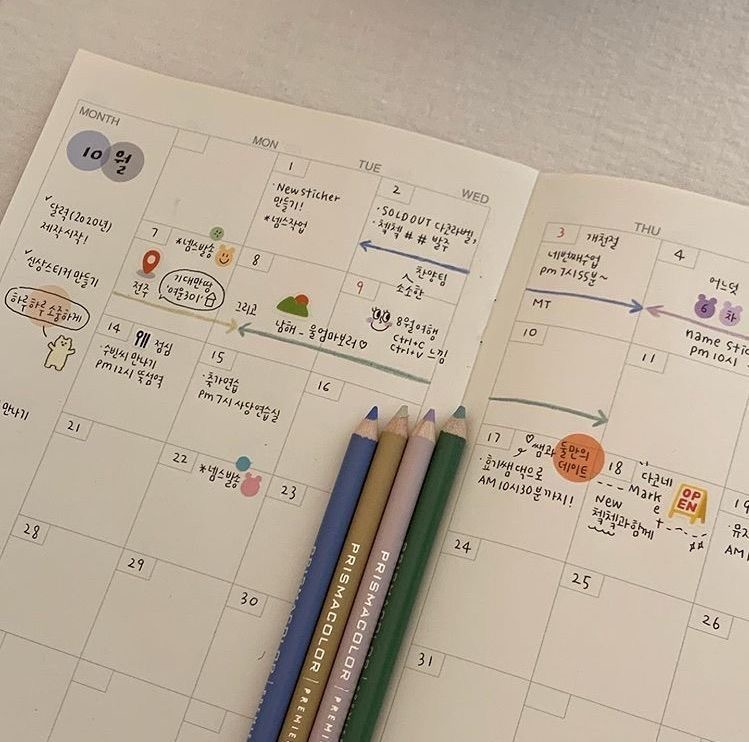 MONTH
MON
TUE
WED
THU
10 월
✓달력(2020년)
제작시작!
✓선상스티커 만들기
하루하루 소중하게
만나기
1
·New sticker
만들기!
*넴스작업
2
·SOLD OUT 다코라벨,
·첵첵 # # 발주
찬양팀
소소한
3
개천절
네번째수업
pm 7시55분~
MT
4
어느덧
6 차
name stic
pm 10시
7
*넴스발송
전주
기대만땅
'여운301'
8
그리고
남해_울엄마보러♡
9
8월여행
ctrl+C
ctrl+V 느낌
10
11
14
점심
·수빈씨 만나기
pm 12시 뚝섬역
15
·축가연습
pm 7시 사당연습실
16
17
♡쌤과 둘만의
데이트
·효기쌤댁으로
AM 10시30분까지!
18
다코네
Market
OPEN
New
첵첵과함께
19
·유지
AM 1
21
22
*넴스발송
23
24
25
26
28
29
30
31
PRISMACOLOR | PREMIER
PRISMACOLOR | PREMIE